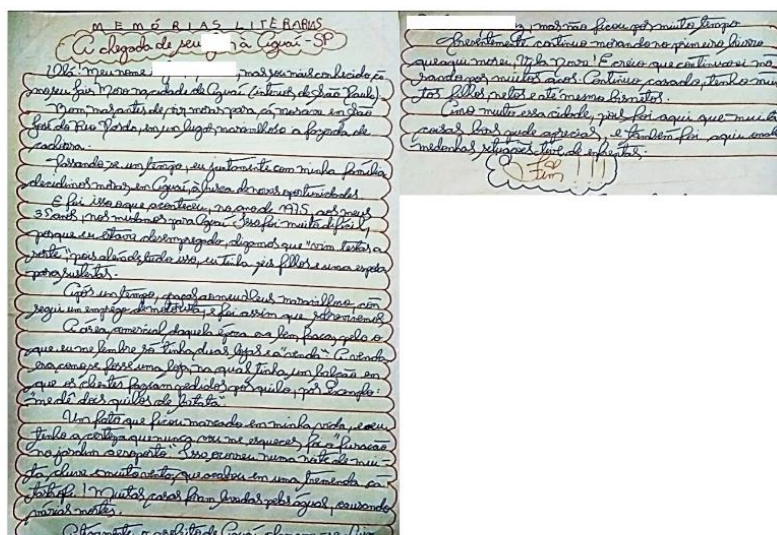 MEMÓRIAS LITERÁRIAS
A chegada de seu à Aguaí-SP
Olá! Meu nome , mas sou mais conhecido, co
mo seu fais Moro na cidade de Aguaí (interior de São Paulo).
Bom, mas antes de vir morar para cá, morava em São
José do Rio Pardo, em um lugar maravilhoso a fazenda da
cachoeira.
Passando-se um tempo, eu juntamente com minha família
decidimos morar em Aguaí, à busca de novas oportunidades.
E foi isso o que aconteceu, no ano de 1975, aos meus
35 anos, nos mudamos para Aguaí. Isso foi muito difícil,
porque eu estava desempregado, digamos que "vim testar a
sorte" pois além de tudo isso, eu tinha seis filhos e uma esposa
para sustentar.
Após um tempo, graças ao meu Deus maravilhoso, con
segui um emprego de motorista, e foi assim que sobrevivemos
A área comercial daquela época era bem fraca, pelo o
que eu me lembre só tinha duas lojas e a "venda". A venda
era como se fosse uma loja, na qual tinha um balcão em
que os clientes faziam pedidos por quilo, por exemplo:
"me dê dois quilos de batata".
Um fato que ficou marcado em minha vida, e eu
tinha a certeza que nunca vou me esquecer, foi o "furacão
no jardim aeroporto". Isso ocorreu numa noite de mui
ta chuva e muito vento, que acabou em uma tremenda ca
tástrofe! Muitas casas foram levadas pelas águas, causando
várias mortes.
Atualmente, o prefeito de Aguaí
, mas não ficou por muito tempo
Presentemente continuo morando no primeiro bairro
que aqui morei, Vila Nova! E creio que continuarei mo
rando por muitos anos. Continuo casado, tenho mui
tos filhos, netos e até mesmo bisnetos.
Amo muito essa cidade, pois foi aqui que muitas
coisas boas pude apreciar, e também foi aqui onde
medonhas situações tive de enfrentar.
Fim!!!